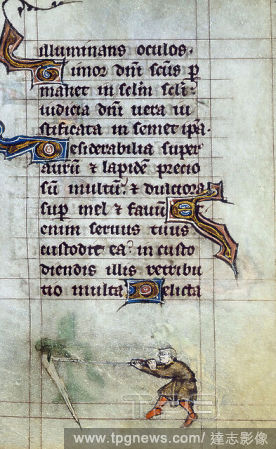 illuminans oculos.
Timor dñi scũs p
manet in sclm scli:
iudicia dñi uera iu
stificata in semet ip̃a.
Desiderabilia super
aurũ & lapidẽ precio
sũ multũ: & dulciora
sup mel & fauũ
enim seruus tuus
custodit ea: in custo
diendis illis retribu
tio multa Delicta
www.tpgnews.com/ 達志影像